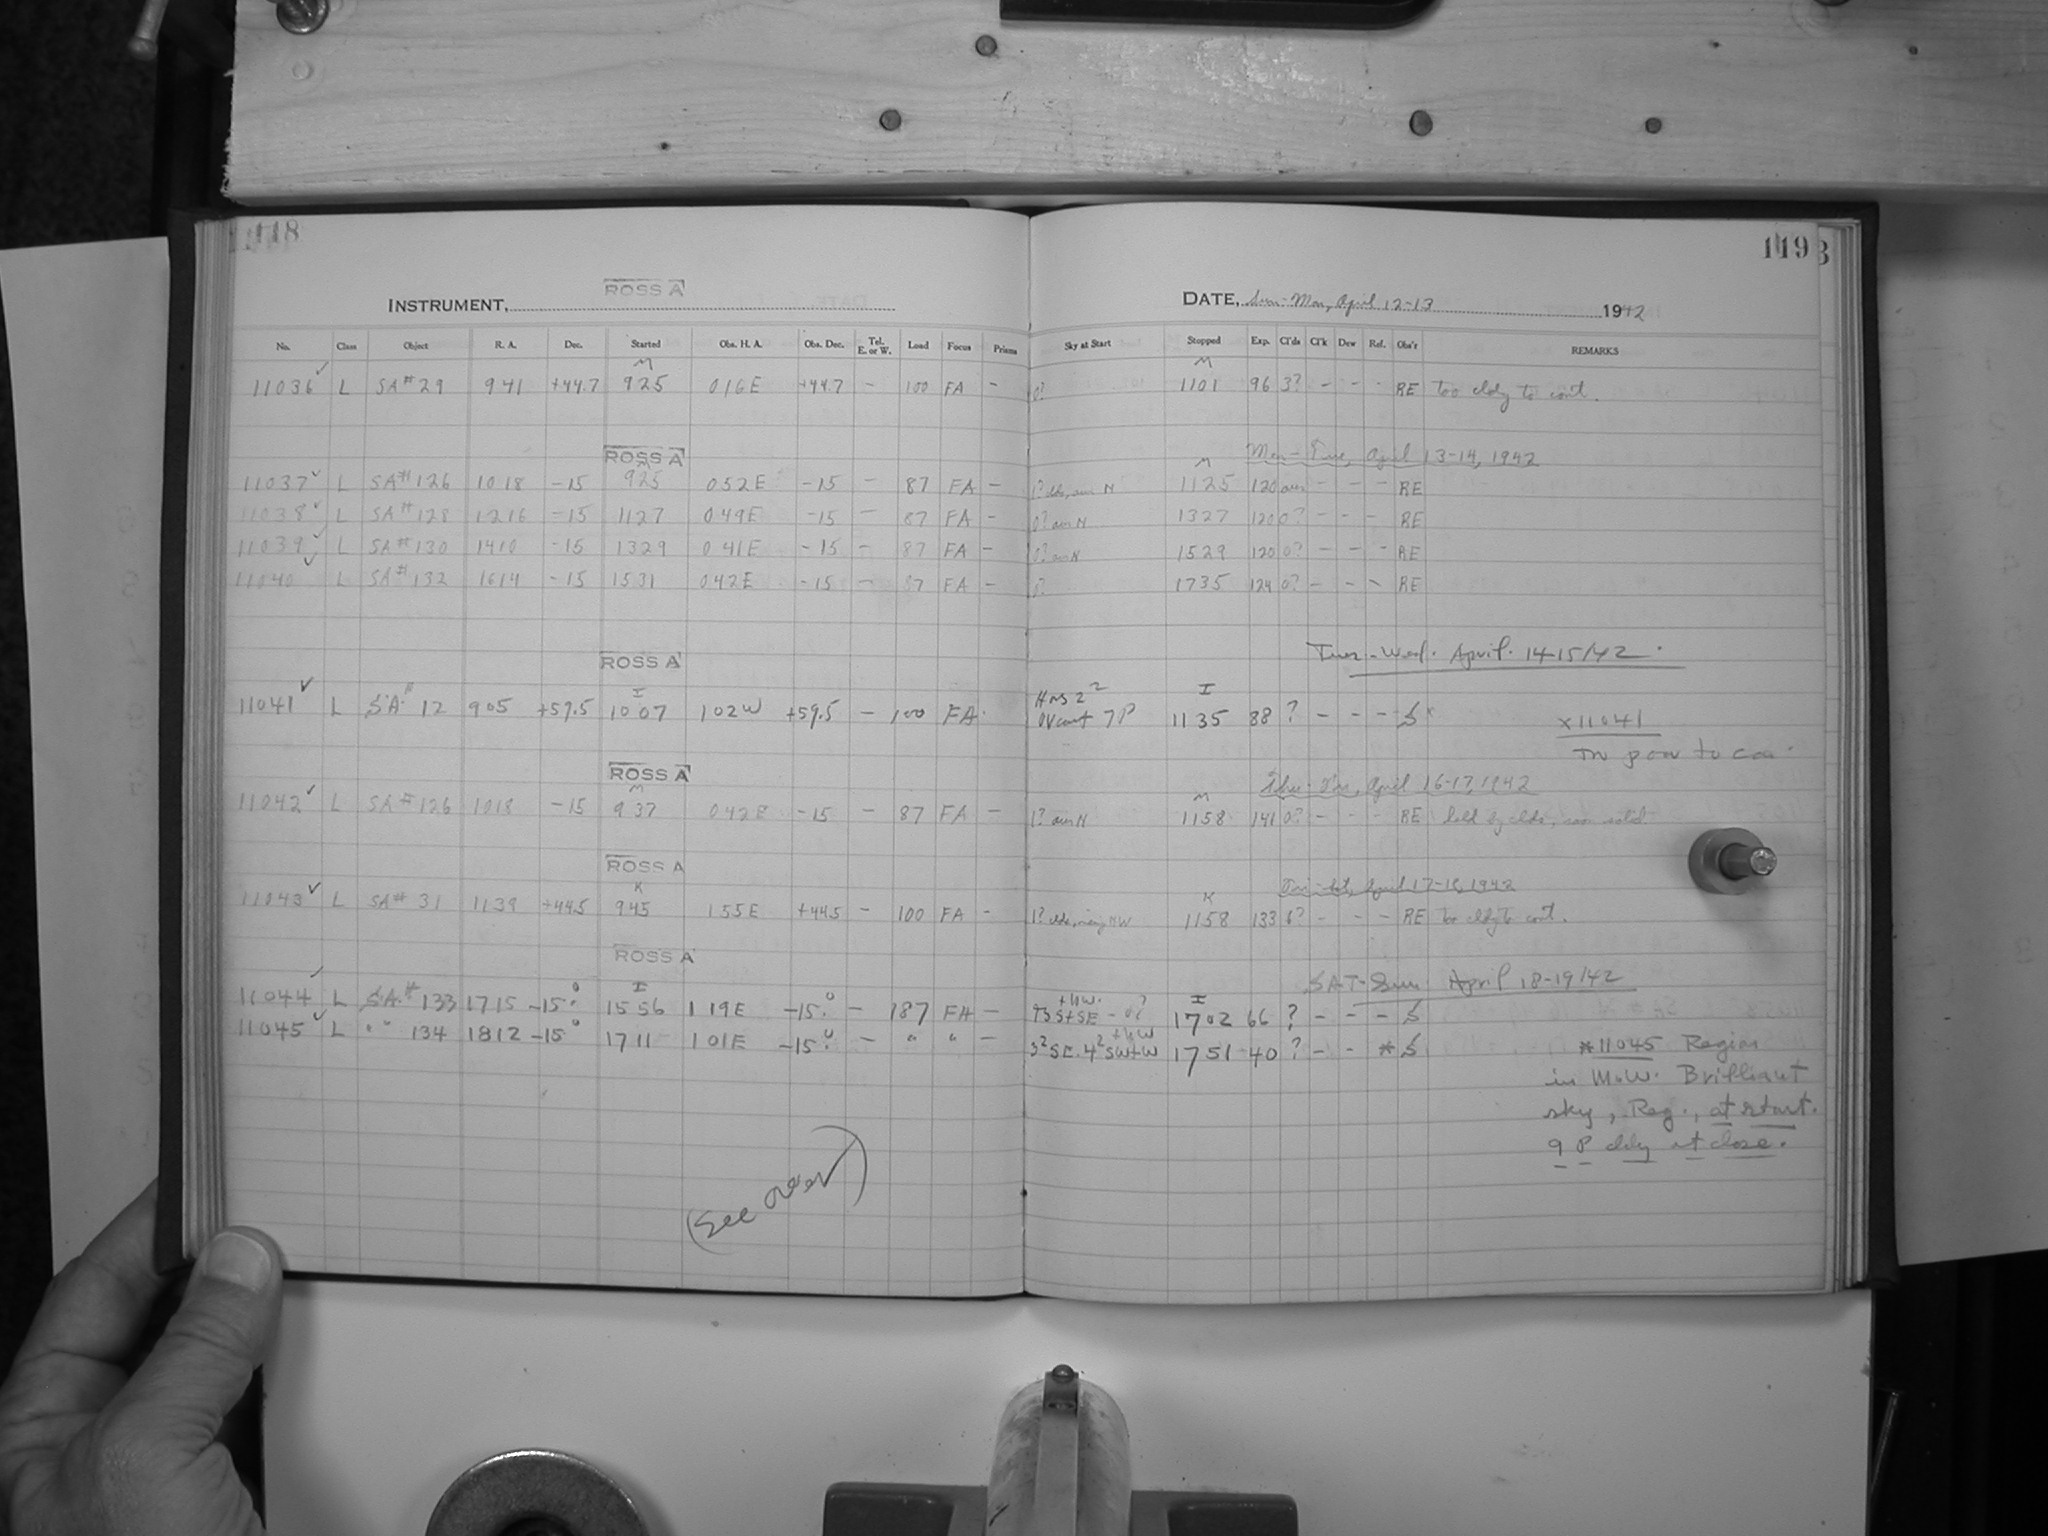 118
119
ROSS A
INSTRUMENT,
DATE, Sun-Mon, April 12-13 1942
No. Class Object R. A. Dec. Started Obs. H. A. Obs. Dec. Tel. E. or W. Load Focus Prisms Sky at Start Stopped Exp. Cl'ds Cl'k Dew Ref. Obs'r REMARKS
M M
11036 ✓ L SA# 29 941 +44.7 925 016E +44.7 - 100 FA - 0? 1101 96 3? - - - RE Too cldy to cont.
ROSS A Mon-Tue, April 13-14, 1942
M M
11037 ✓ L SA# 126 1018 -15 925 052E -15 - 87 FA - 1? N 1125 120 - - - RE
11038 ✓ L SA# 128 1216 -15 1127 049E -15 - 87 FA - 0? aur N 1327 120 0? - - - RE
11039 ✓ L SA# 130 1410 -15 1329 041E -15 - 87 FA - 0? aur N 1529 120 0? - - - RE
11040 ✓ L SA# 132 1614 -15 1531 042E -15 - 87 FA - 0? 1735 124 0? - - - RE
ROSS A Tues-Wed. April. 14-15/42.
I I
11041 ✓ L S.A.# 12 905 +59.5 1007 102W +59.5 - 100 FA. 7P 1135 88 ? - - - S*
x11041
to
ROSS A Thu-Fri, April 16-17, 1942
M M
11042 ✓ L SA# 126 1018 -15 937 042E -15 - 87 FA - 1? aur N 1158 141 0? - - - RE by clds, solid
ROSS A Fri-Sat, April 17-18, 1942
K K
11043 ✓ L SA# 31 1139 +44.5 945 155E +44.5 - 100 FA - 1? clds, NW 1158 133 6? - - - RE Too cldy to cont.
ROSS A SAT-Sun April 18-19/42
I I
11044 ✓ L S.A.# 133 1715 -15.° 1556 119E -15.° - 187 FA - 1702 66 ? - - - S
11045 ✓ L " " 134 1812 -15° 1711 101E -15.° - " " - 3² SE. 4² SW+W 1751 40 ? - - * S
*11045 Region
in M.W. Brilliant
sky, Reg., at start.
9 P cldy at close.
(See over)